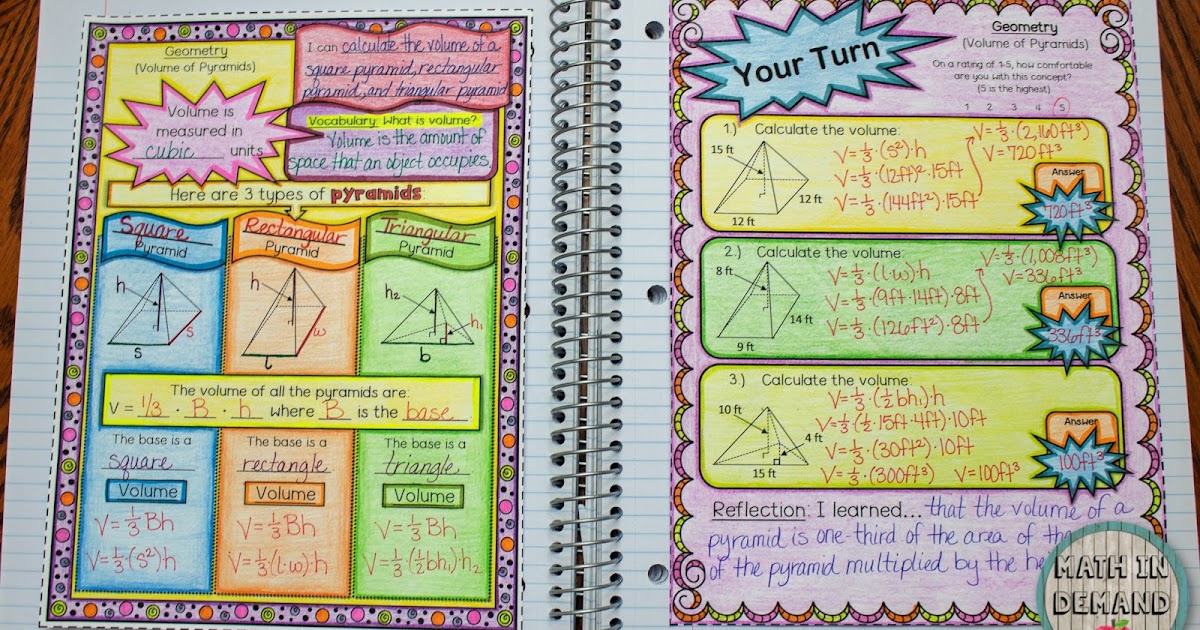 Geometry
(Volume of Pyramids)
I can calculate the volume of a
square pyramid, rectangular
pyramid, and triangular pyramid
Volume is
measured in
cubic units
Vocabulary: What is volume?
Volume is the amount of
space that an object occupies.
Here are 3 types of pyramids
Square
Pyramid
h
s
s
Rectangular
Pyramid
h
w
l
Triangular
Pyramid
h₂
h₁
b
The volume of all the pyramids are:
V = 1/3 · B · h where B is the base
The base is a
square
Volume
V=⅓Bh
V=⅓·(s²)h
The base is a
rectangle
Volume
V=⅓Bh
V=⅓(l·w)·h
The base is a
triangle
Volume
V=⅓Bh
V=⅓·(½bh₁)·h₂
Your Turn
Geometry
(Volume of Pyramids)
On a rating of 1-5, how comfortable
are you with this concept?
(5 is the highest)
1 2 3 4 5
1.) Calculate the volume:
15 ft
12 ft
12 ft
V=⅓·(s²)·h
V=⅓·(12ft)²·15ft
V=⅓·(144ft²)·15ft
V=⅓·(2,160ft³)
V=720ft³
Answer
720ft³
2.) Calculate the volume:
8 ft
14 ft
9 ft
V=⅓·(l·w)·h
V=⅓·(9ft·14ft)·8ft
V=⅓·(126ft²)·8ft
V=⅓·(1,008ft³)
V=336ft³
Answer
336ft³
3.) Calculate the volume:
10 ft
4 ft
15 ft
V=⅓·(½bh₁)·h
V=⅓·(½·15ft·4ft)·10ft
V=⅓·(30ft²)·10ft
V=⅓·(300ft³) V=100ft³
Answer
100ft³
Reflection: I learned... that the volume of a
pyramid is one-third of the area of
of the pyramid multiplied by the
MATH IN
DEMAND